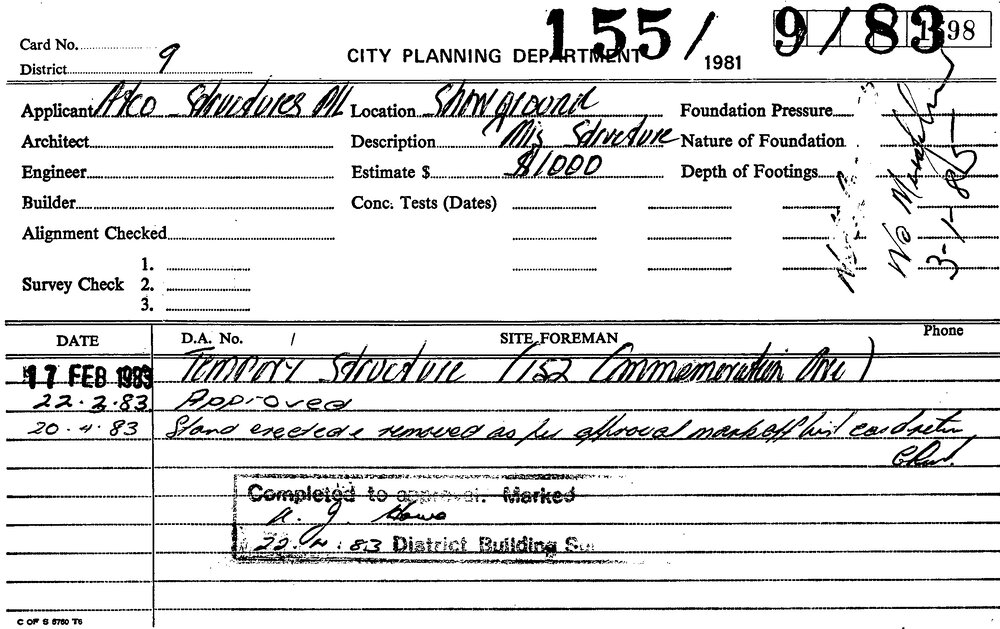 155/ 9/83
98
Card No.
District 9
CITY PLANNING DEPARTMENT
1981
Applicant Atco Structures P/L Location Showground Foundation Pressure
Architect Description Mis Structure Nature of Foundation
Engineer Estimate $ $1000 Depth of Footings
Builder Conc. Tests (Dates)
Alignment Checked
No
3-1-85
Survey Check
1.
2.
3.
DATE D.A. No. SITE FOREMAN Phone
17 FEB 1983 Tempory Structure (152 Commemoration Ave)
22.2.83 Approved
20.4.83 Stand erected & removed as per approval mark off
Completed to approval. Marked
22.4.83 District Building
C OF S 6760 T6